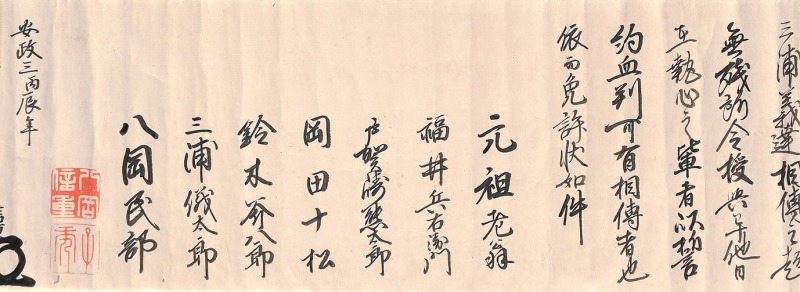 三浦義達相傳之趣
無残所令授與畢他日
在執心之輩者以誓
約血判可有相傳者也
依而免許状如件
元祖老翁
福井兵右衛門
戸賀崎熊太郎
岡田十松
鈴木斧八郎
三浦太郎
八岡民部
八岡
信重
安政三丙辰年